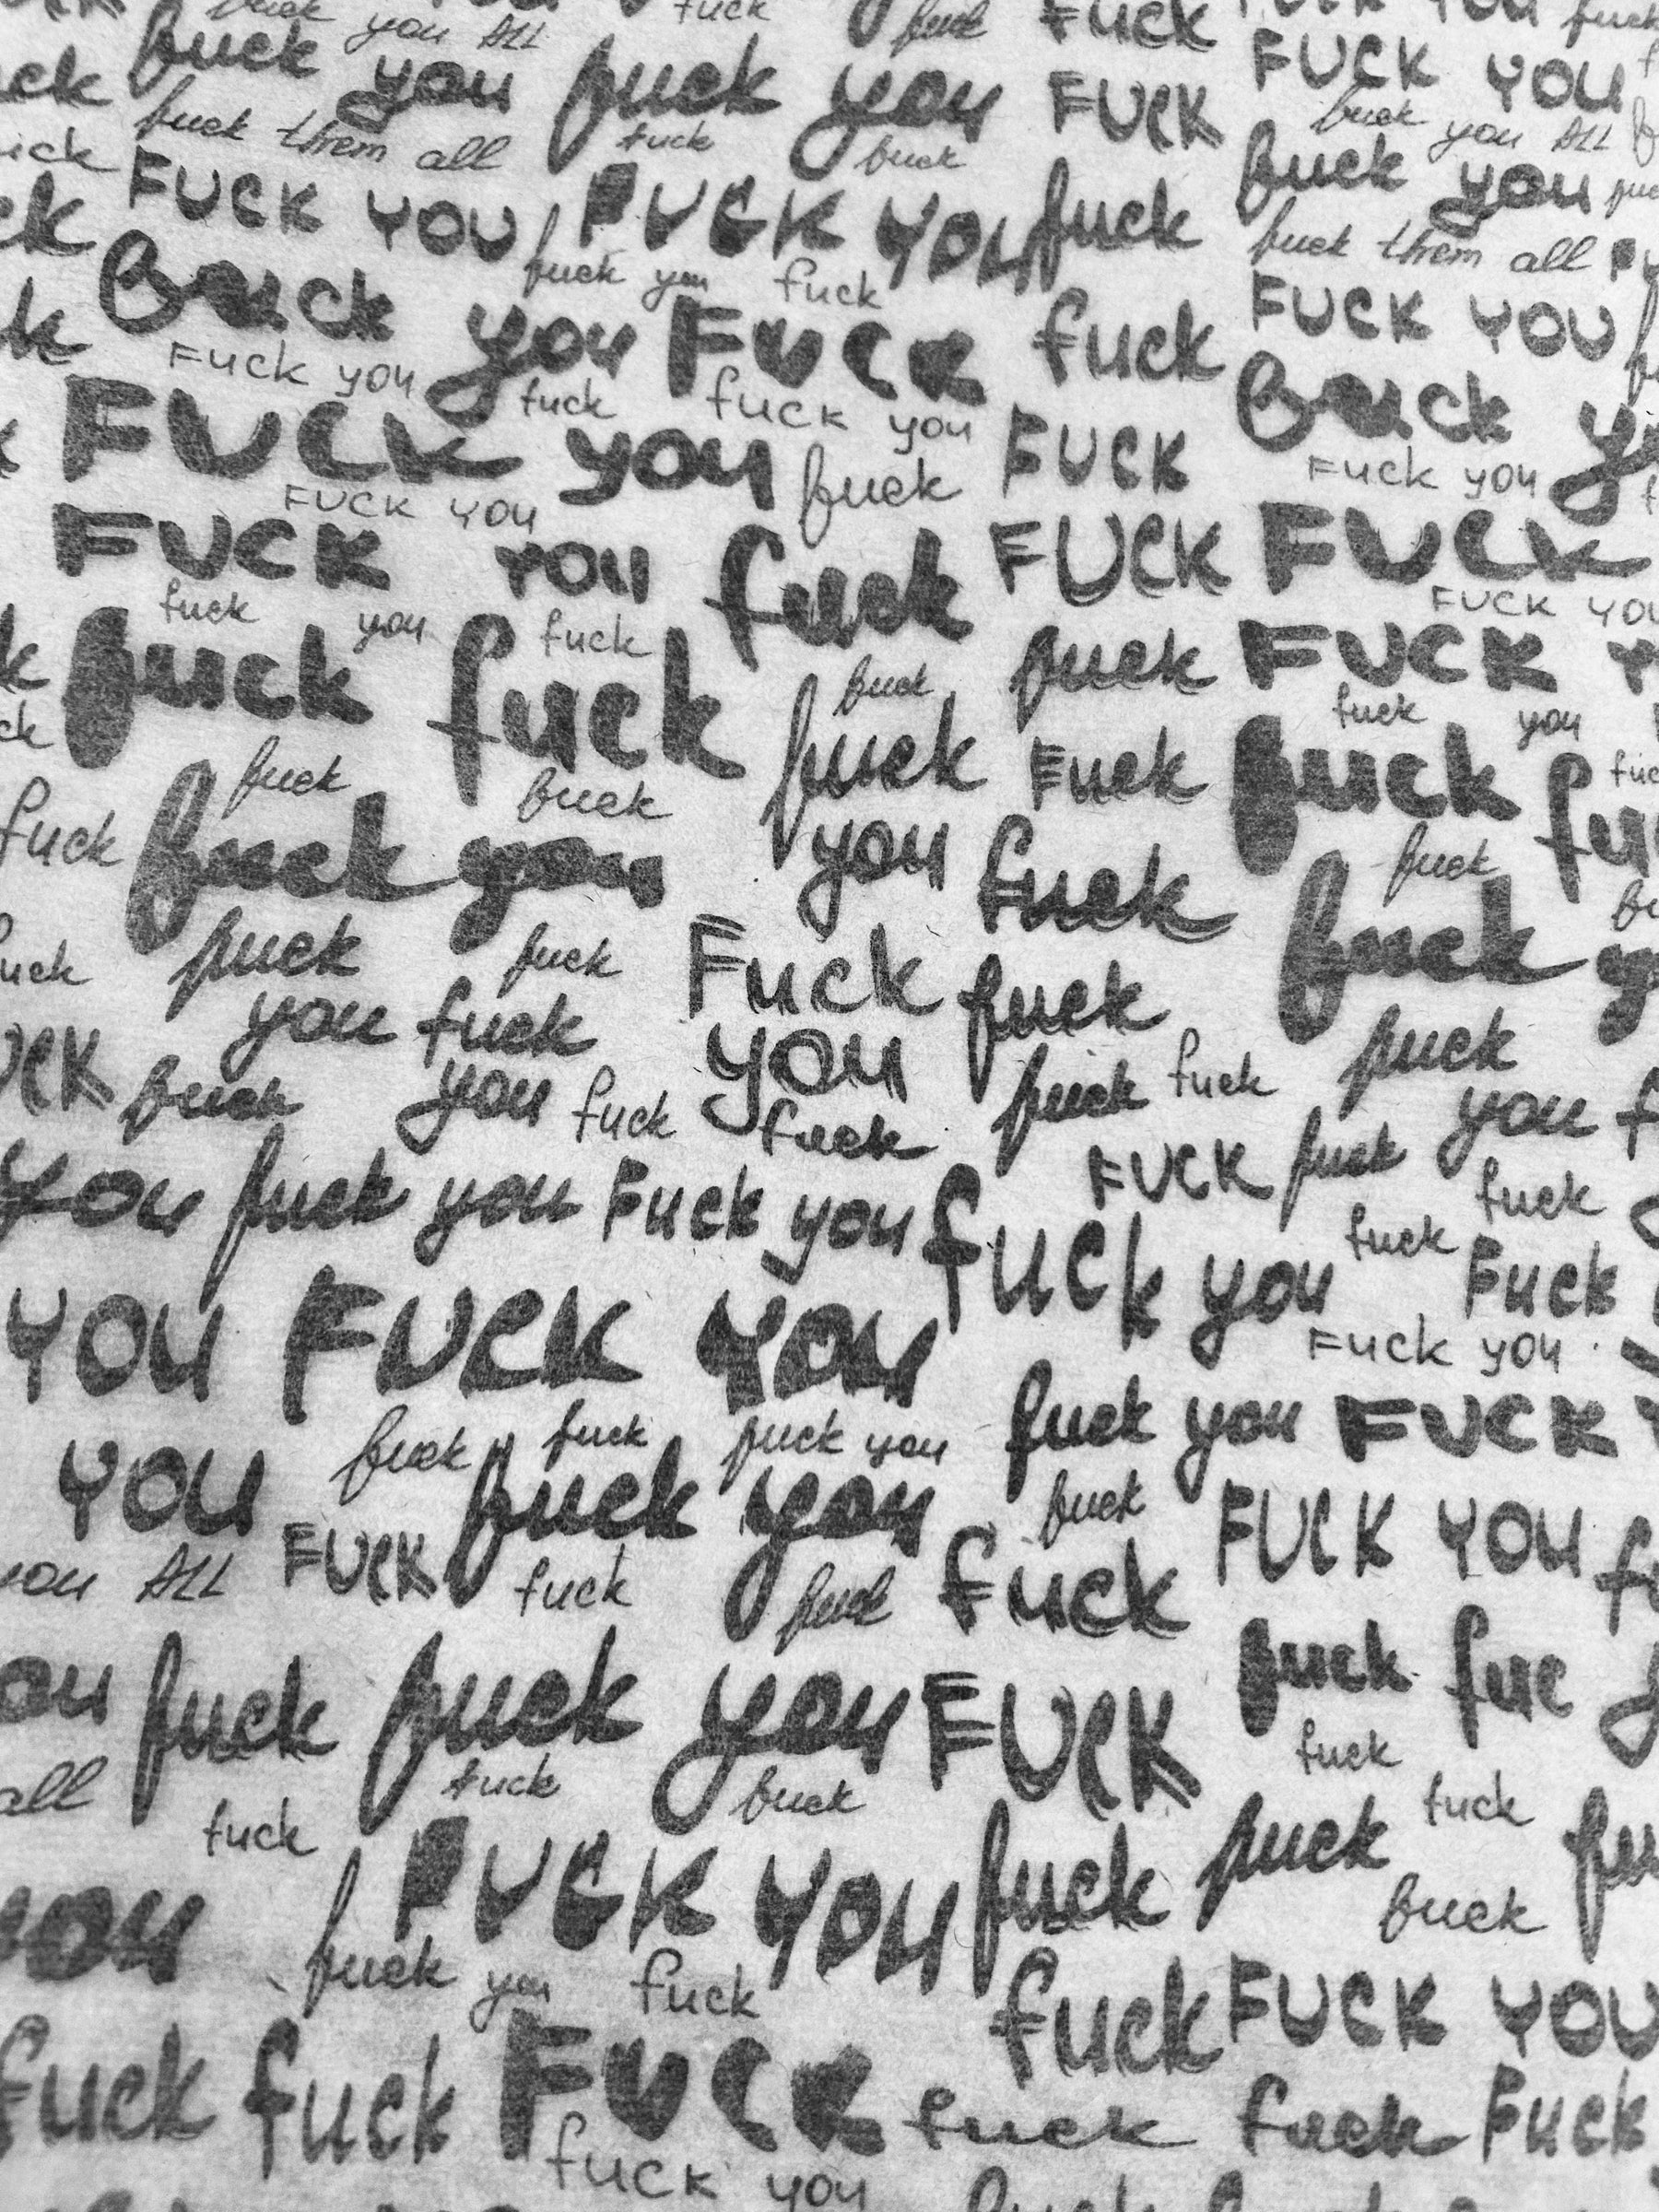 fuck
fuck you ALL fuck FUCK YOU fuck
fuck you fuck you FUCK FUCK YOU
fuck them all fuck fuck fuck you ALL
FUCK YOU FUCK YOU fuck fuck you
fuck you fuck fuck them all
fuck you FUCK fuck FUCK YOU
Fuck you fuck fuck you fuck
FUCK you fuck FUCK Fuck you
FUCK YOU
FUCK YOU fuck FUCK FUCK
fuck you fuck FUCK YOU
fuck fuck fuck fuck FUCK
fuck you
fuck fuck fuck Fuck fuck
fuck fuck you you fuck fuck
fuck fuck fuck Fuck fuck fuck
you fuck you fuck
fuck you fuck fuck fuck fuck you
fuck FUCK fuck fuck
you fuck you Fuck you fuck you fuck Fuck
YOU FUCK YOU Fuck you
fuck fuck fuck you fuck you FUCK
YOU fuck you fuck FUCK YOU
you ALL FUCK fuck fuck fuck
fuck fuck you FUCK fuck fuc
all fuck fuck fuck
fuck fuck fuck
you FUCK YOU fuck fuck fuck
fuck you fuck fuck FUCK YOU
fuck fuck FUCK fuck fuck Fuck
fuck you